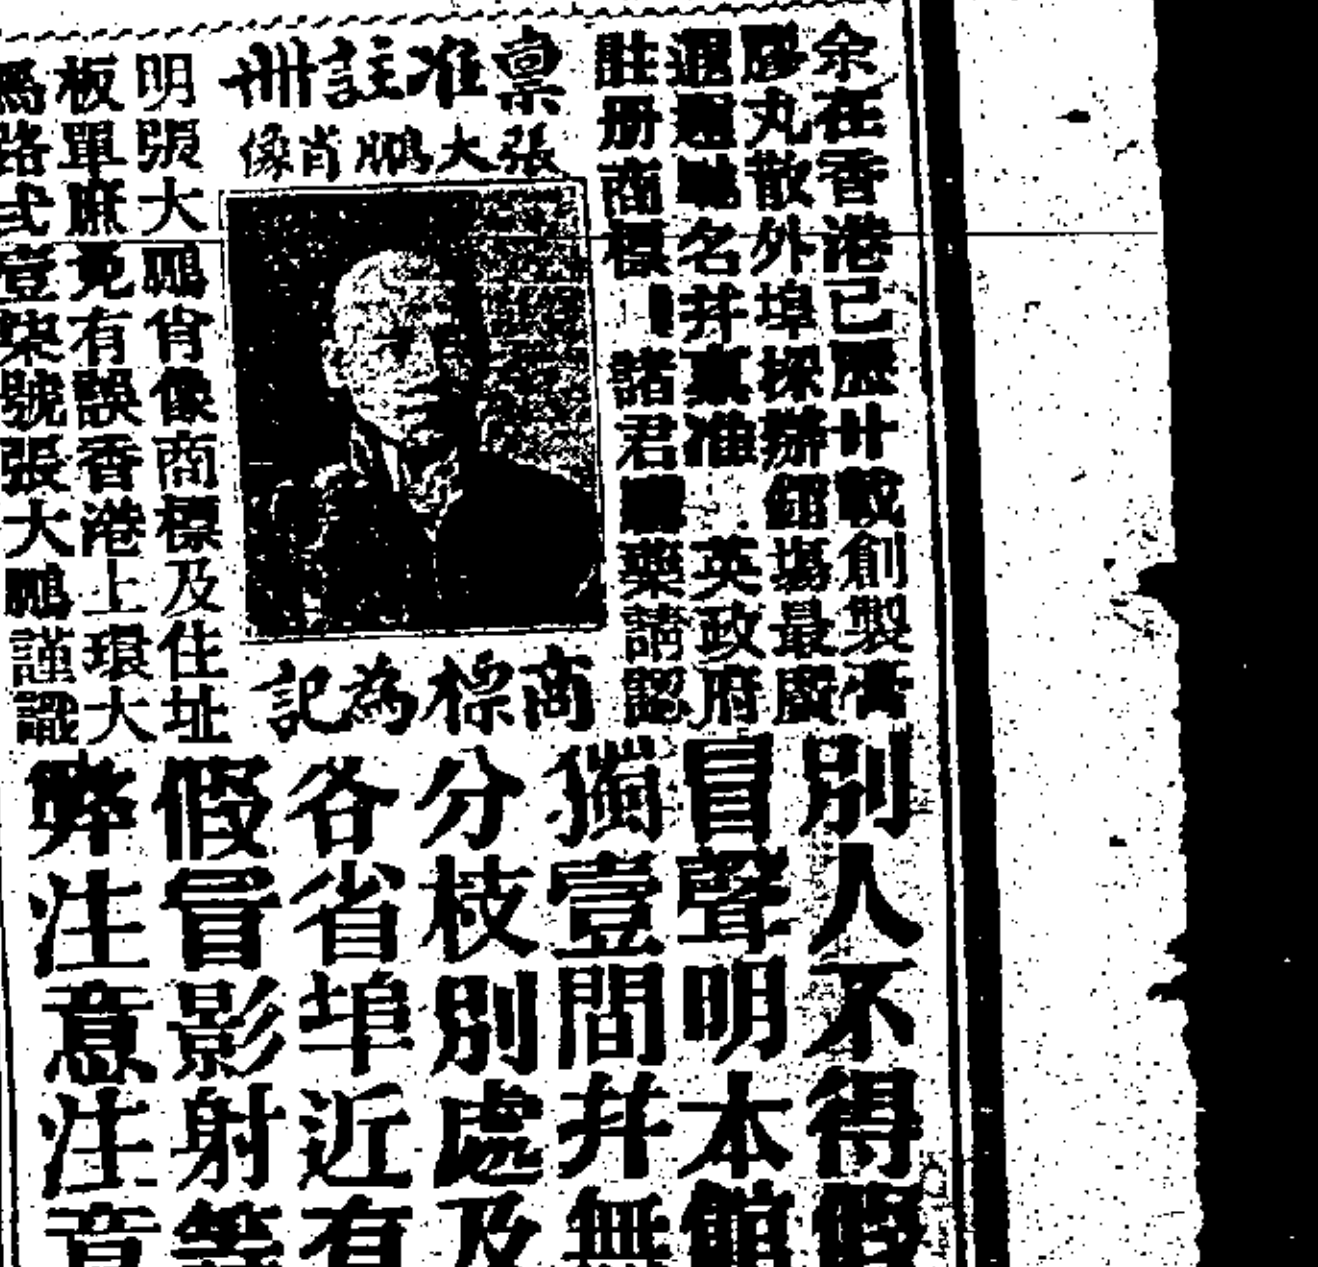 余在香港已歷廿載創製膏
膠丸散外埠採辦館塲最廣
遐邇馳名并稟准 英政府
註册商標 諸君購藥請認
稟准註冊
張大鵬肖像
商標為記
明張大鵬肖像商標及住址
板單庶免有誤香港上環大
馬路弍壹柒號張大鵬謹識
別人不得假
冒聲明本館
獨壹間并無
分枝別處及
各省埠近有
假冒影射等
弊注意注意